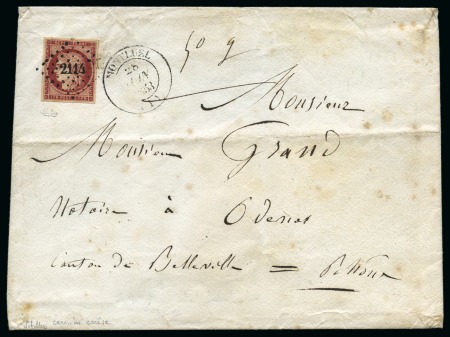 2114
MONTLUEL
28
JUIN
50 g
Monsieur
Monsieur Grand
Notaire à Odenas
Canton de Belleville = Rhône
carmin cerise